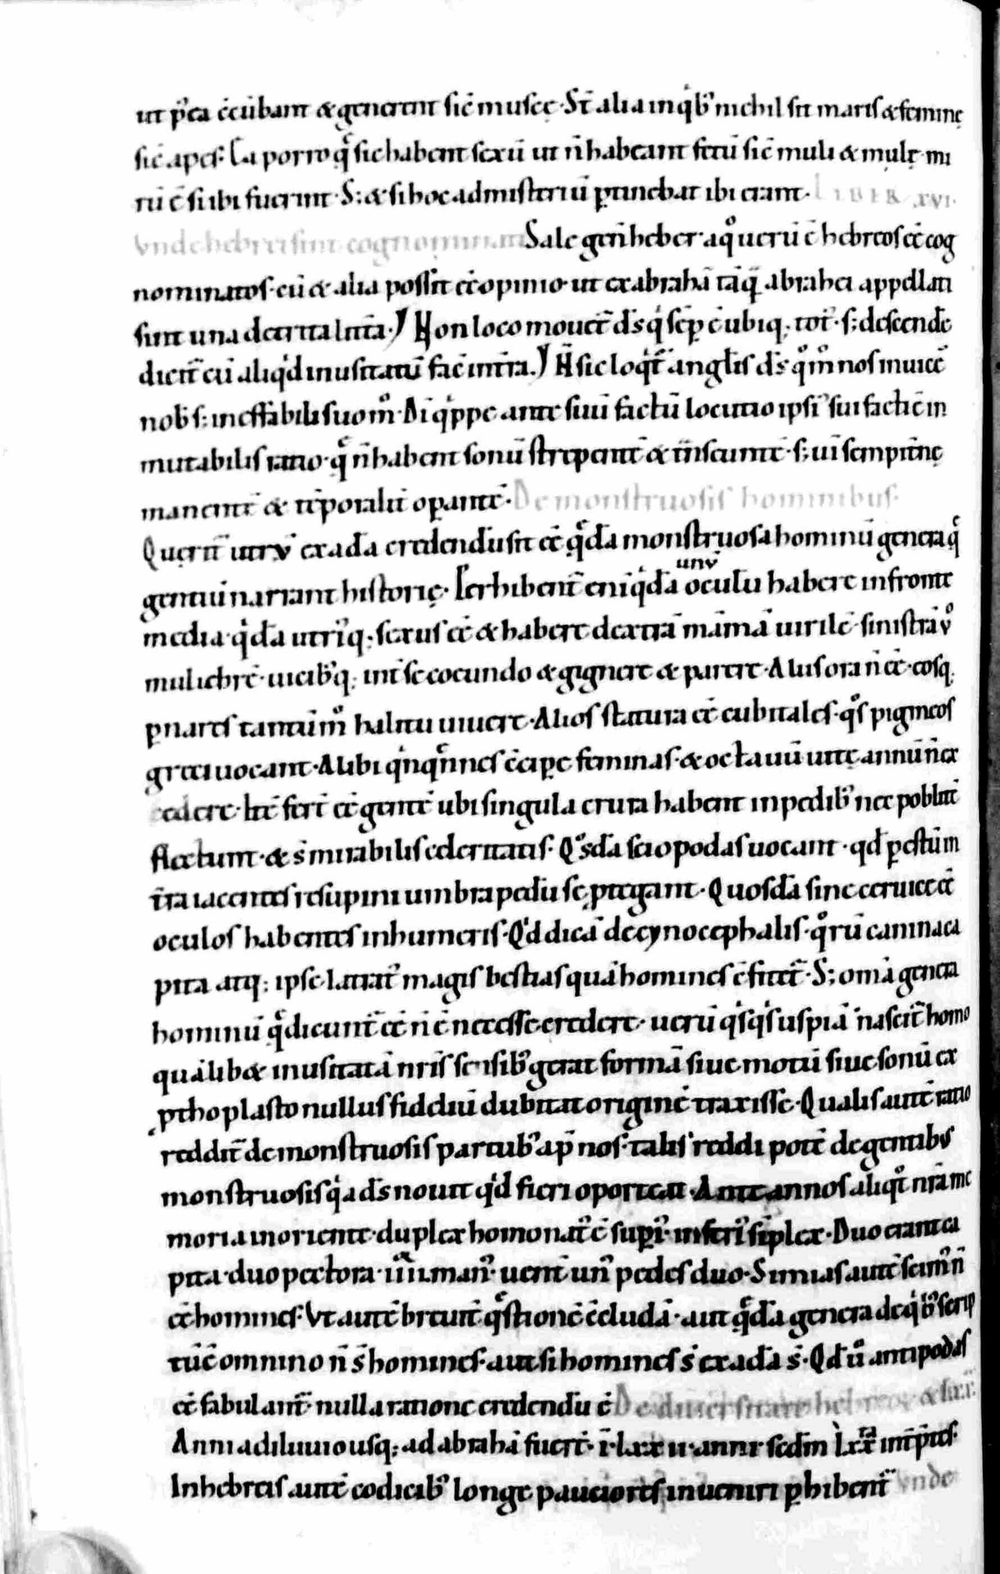 ut p̾ea c̄cūbant & generent sic̄ muscę. St̄ alia in q̍b᾽ nichil sit maris & feminę
sic̄ apes. Ea porro q̨̄ sic habent sexū ut n̄ habeant fetū sic̄ muli & mulę mi
rū ē si ibi fuerint. S; & si hoc ad misteriū ꝑtinebat ibi erant. LIBER .XVI.
Vnde hebrei sint cognominati Sale gen̄ heber a q°̄ uerū ē hebreos eē cog
nominatos. cū & alia possit eē opinio. ut ex abrahā tāq̄ abrahei appellati
sint una detrita lr̄a. Non loco mouet̄ d̄s q̍ sēp ē ubiq; tot̄. s; descende
dicit̄ cū aliq̍d inusitatū fac̄ in tr̄a. N̄ sic loq̍t̄ angl̄is d̄s q°m° nos inuicē
nob̄ s; ineffabili suo m°. Di q̍ppe ante suū factū locutio ipsi᾽ sui facti ē in
mutabilis ratio. q̨̄ n̄ habent sonū strepentē & tn̄seuntē. s; uī sempit̄nę
manentē & tēporalit̄ oꝑantē. De monstruosis hominibus.
Queritˉ utrū ex adā credendū sit eē q̨̄dā monstruosa hominū genera q̨̄
gentiū narrant historię. Perhibent̄ eni q̍dā unū oculū habere in fronte
media. q̍dā utri᾽q; sexus eē & habere dextrā māmā uirilē. sinistrā ū°
muliebrē. uicib᾽q; int̄ se coeundo & gignere & parere. Aliis ora n̄ eē. eosq;
ꝑ nares tantūm° halitu uiuere. Alios statura eē cubitales. q°s pigmeos
greci uocant. Alibi q̍nq̄nnes c̄cipe feminas. & octauū uitę annū n̄ ex
cedere. Itē fert̄ eē gentē ubi singula crura habent in pedib᾽ nec poblitē
flectunt. & s̄ mirabilis celeritatis. Q°sdā sciopodas uocant. qd̄ ꝑ estūm
t̄ra iacentes resupini umbra pedū se ptegant. Quosdā sine ceruice eē
oculos habentes in humeris. Q̍d dicā de cynocephalis. q°rū canina ca
pita atq; ipse latrat᾽ magis bestias quā homines c̄fitet̄. S; omā genera
hominū q̨̄ dicunt̄ eē n̄ ē necesse credere. uerū q̍sq̍s uspiā nascit̄ homo
quālib& inusitatā nr̄is sensib᾽ gerat formā siue motū siue sonū ex
ptho plasto nullus fideliū dubitat originē traxisse. Qualis autē ratio
reddit̄ de monstruosis partub᾽ ap̄ nos. talis reddi potē de gentib᾽
monstruosis q̍a d̄s nouit q̍d fieri oporteat. Ante annos aliq°t nr̄a me
moria in oriente. duplex homo nat᾽ ē supi᾽. inferi᾽ sīplex. Duo erant ca
pita. duo pectora. iiii. man᾽. uent̄ un᾽ pedes duo. Simias autē scim᾽ n̄
eē homines. Vt autē breuit̄ q̨̄stionē c̄cludā. aut q̨̄dā genera de q̍b᾽ scrip
tū ē omnino n̄ s̄ homines. aut si homines s̄ ex adā s̄. Qd̄ ū antipodas
eē fabulant̄. nulla ratione credendū ē. De diuersitate hebreor & lxx.
Anni a diluuio usq; ad abrahā fuer̄. ī. lxx ii. anni sedm̄ Lxx int̄p̄tes.
In hebreis autē codicib᾽ longe pauciores inueniri ꝑhibent̄ Vnde